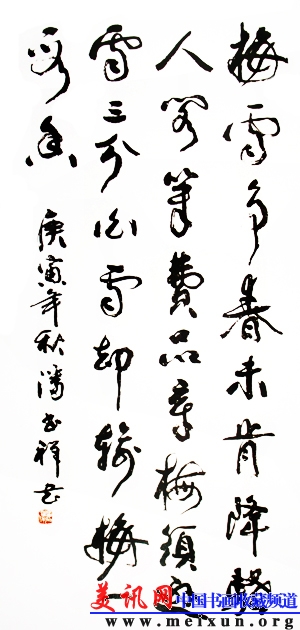 梅雪争春未肯降骚
人阁笔费品章梅须逊
雪三分白雪却输梅一
段香
庚寅年秋潘书祥书
美讯网 中国书画收藏频道
www.meixun.org